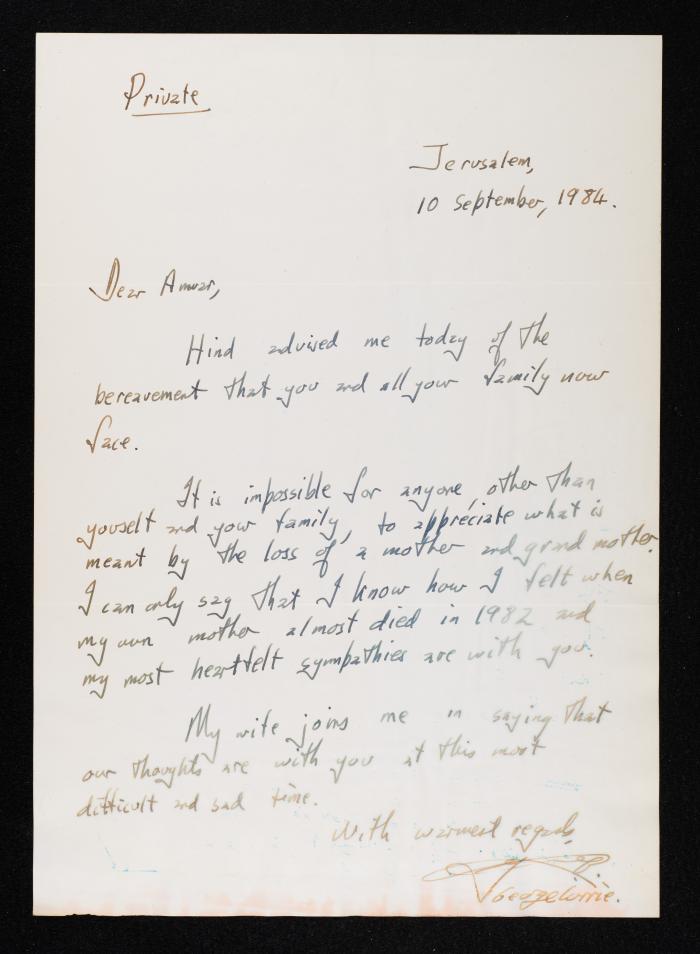 Private
Jerusalem,
10 September, 1984.
Dear Anwar,
Hind advised me today of the
bereavement that you and all your family now
face.
It is impossible for anyone, other than
youself and your family, to appreciate what is
meant by the loss of a mother and grand mother.
I can only say that I know how I felt when
my own mother almost died in 1982 and
my most heartfelt sympathies are with you.
My wife joins me in saying that
our thoughts are with you at this most
difficult and sad time.
With warmest regards,